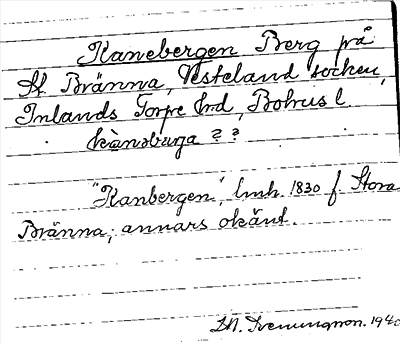 Kanebergen Berg på
St. Bränna, Vesteland socken,
Inlands Torpe hrd, Bohus l.
kànəbærja ? ?
"Kanbergen", lmh. 1830 f. Stora
Bränna; annars okänt.
1940